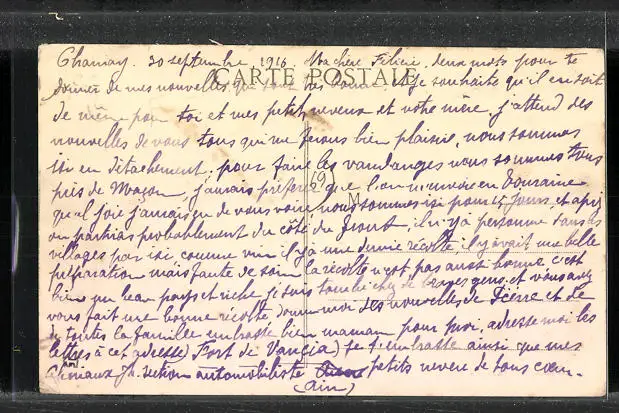 Charnay. 30 septembre 1916. Ma chère Félicie, deux mots pour te
CARTE POSTALE
donner de mes nouvelles qui sont très bonne, et je souhaite qu'il en soit
de même pour toi et mes petits neveux et votre mère, j'attend des
nouvelles de vous tous qui me ferons bien plaisir, nous sommes
ici en détachement, pour faire les vandanges nous sommes tous
près de Maçon, j'aurais préféré que l'on m'envoie en Touraine
quel joie j'aurais eu de vous voir, nous sommes ici pour 15 jours et après
on partiras probablement du côté du front, il n'y a personne dans les
villages par ici, comme vin il y a une demie récolte, il y avait une belle
préparation mais faute de soin la récolte n'est pas aussi bonne c'est
bien un beau pays et riche je suis tombé chez de braves gens, et vous avez
vous fait une bonne récolte donne moi des nouvelles de Pierre et de
toutes la famille embrasse bien maman pour moi, adresse moi les
lettres à cet adresse) Fort de Vancia) je t'embrasse ainsi que mes
petits neveu de tous cœur.
section automobiliste
(Ain)